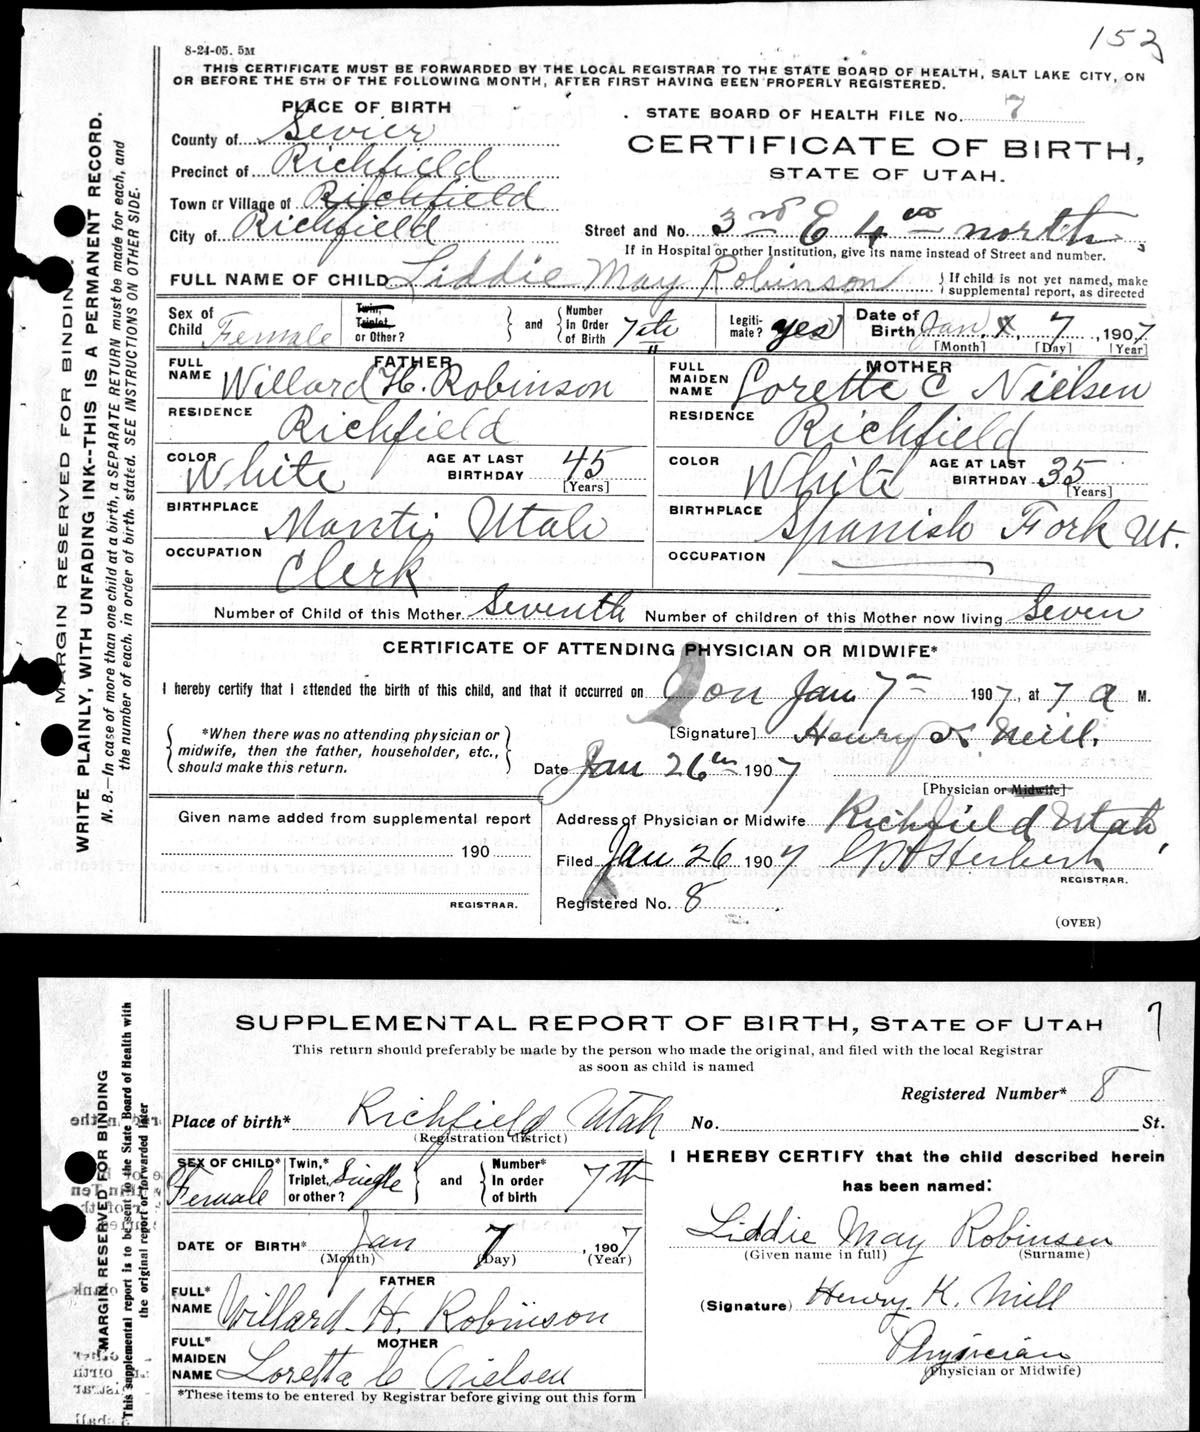 153
8-24-05. 5M
THIS CERTIFICATE MUST BE FORWARDED BY THE LOCAL REGISTRAR TO THE STATE BOARD OF HEALTH, SALT LAKE CITY, ON
OR BEFORE THE 5TH OF THE FOLLOWING MONTH, AFTER FIRST HAVING BEEN PROPERLY REGISTERED.
PLACE OF BIRTH
County of Sevier
Precinct of Richfield
Town or Village of Richfield
City of Richfield
STATE BOARD OF HEALTH FILE No. 7
CERTIFICATE OF BIRTH,
STATE OF UTAH.
Street and No. 3rd E 4th north
If in Hospital or other Institution, give its name instead of Street and number.
FULL NAME OF CHILD Liddie May Robinson { If child is not yet named, make supplemental report, as directed
Sex of Child Female
Twin, Triplet, or Other? } and { Number In Order of Birth 7th
Legiti-mate? yes
Date of Birth Jan, 7, 1907
[Month] [Day] [Year]
FATHER
FULL NAME Willard H. Robinson
RESIDENCE Richfield
COLOR White AGE AT LAST BIRTHDAY 45 [Years]
BIRTHPLACE Manti, Utah
OCCUPATION Clerk
MOTHER
FULL MAIDEN NAME Lorette C Nielsen
RESIDENCE Richfield
COLOR White AGE AT LAST BIRTHDAY 35 [Years]
BIRTHPLACE Spanish Fork Ut.
OCCUPATION
Number of Child of this Mother Seventh Number of children of this Mother now living Seven
CERTIFICATE OF ATTENDING PHYSICIAN OR MIDWIFE*
I hereby certify that I attended the birth of this child, and that it occurred on on Jan 7th 1907, at 7 a M.
{ *When there was no attending physician or
midwife, then the father, householder, etc.,
should make this return. }
[Signature] Henry K. Neill.
Date Jan 26th 1907
[Physician or Midwife]
Given name added from supplemental report
190
REGISTRAR.
Address of Physician or Midwife Richfield Utah,
Filed Jan 26 1907 Herbert
REGISTRAR.
Registered No. 8
(OVER)
MARGIN RESERVED FOR BINDING.
WRITE PLAINLY, WITH UNFADING INK--THIS IS A PERMANENT RECORD.
N. B.—In case of more than one child at a birth, a SEPARATE RETURN must be made for each, and
the number of each, in order of birth, stated. SEE INSTRUCTIONS ON OTHER SIDE.
SUPPLEMENTAL REPORT OF BIRTH, STATE OF UTAH 7
This return should preferably be made by the person who made the original, and filed with the local Registrar
as soon as child is named
Registered Number* 8
Place of birth* Richfield Utah No. St.
(Registration district)
SEX OF CHILD* Female
Twin,* Triplet, or other? Single } and { Number* In order of birth 7th
DATE OF BIRTH* Jan 7, 1907
(Month) (Day) (Year)
FATHER
FULL* NAME Willard H. Robinson
MOTHER
FULL* MAIDEN NAME Loretta C Nielsen
*These items to be entered by Registrar before giving out this form
I HEREBY CERTIFY that the child described herein
has been named:
Liddie May Robinson
(Given name in full) (Surname)
(Signature) Henry K. Neill
Physician
(Physician or Midwife)
MARGIN RESERVED FOR BINDING
This supplemental report is to be sent to the State Board of Health with
the original report or forwarded later